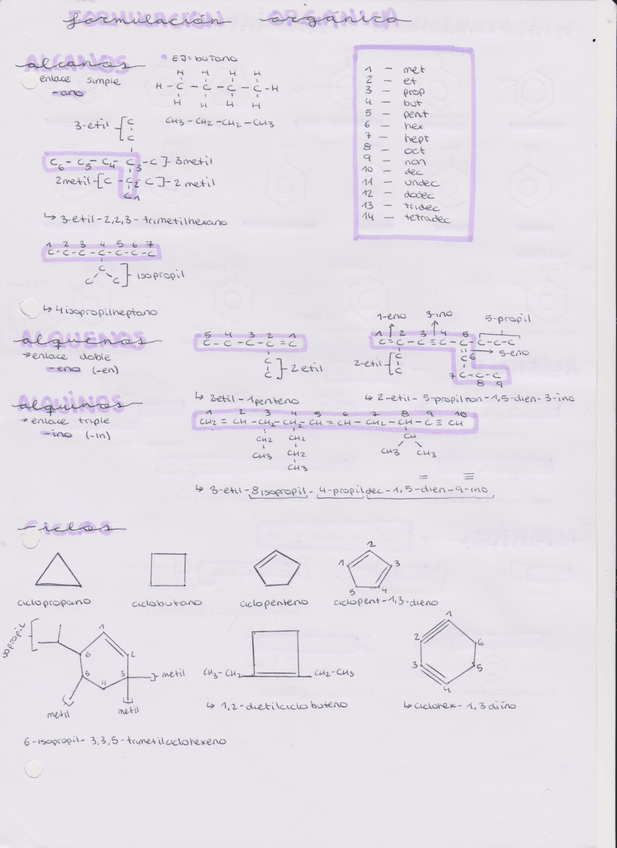 formulación orgánica
alcanos
enlace simple
-ano
EJ: butano
H H H H
H - C - C - C - C - H
H H H H
CH3 - CH2 - CH2 - CH3
1 — met
2 — et
3 — prop
4 — but
5 — pent
6 — hex
7 — hept
8 — oct
9 — non
10 — dec
11 — undec
12 — dodec
13 — tridec
14 — tetradec
3-etil [ C
C
C6 - C5 - C4 - C3 - C ] - 3metil
2metil - [ C - C2 - C ] - 2 metil
C1
↳ 3-etil-2,2,3-trimetilhexano
1 2 3 4 5 6 7
C - C - C - C - C - C - C
C
C C ] isopropil
↳ 4isopropilheptano
alquenos
→ enlace doble
-eno (-en)
5 4 3 2 1
C - C - C - C = C
C
C ] - 2 etil
↳ 2etil-1penteno
1-eno 3-ino 5-propil
1 2 3 4 5
C = C - C ≡ C - C - C - C - C
2-etil - [ C
C
C6 → 5-eno
7 C - C - C
8 9
↳ 2-etil-5propilnon-1,5-dien-3-ino
alquinos
→ enlace triple
-ino (-in)
1 2 3 4 5 6 7 8 9 10
CH2 = CH - CH - CH - CH = CH - CH2 - CH - C ≡ CH
CH2 CH2 CH
CH3 CH2 CH3 CH3
CH3
↳ 3-etil-8isopropil-4-propildec-1,5-dien-9-ino
ciclos
ciclopropano
ciclobutano
ciclopenteno
1 2 3 4 5
ciclopent-1,3-dieno
isopropil
1 2 3 4 5 6
metil
metil
metil
6-isopropil-3,3,5-trimetilciclohexeno
CH3-CH2 CH2-CH3
↳ 1,2-dietilciclobuteno
1 2 3 4 5 6
↳ ciclohex-1,3diino